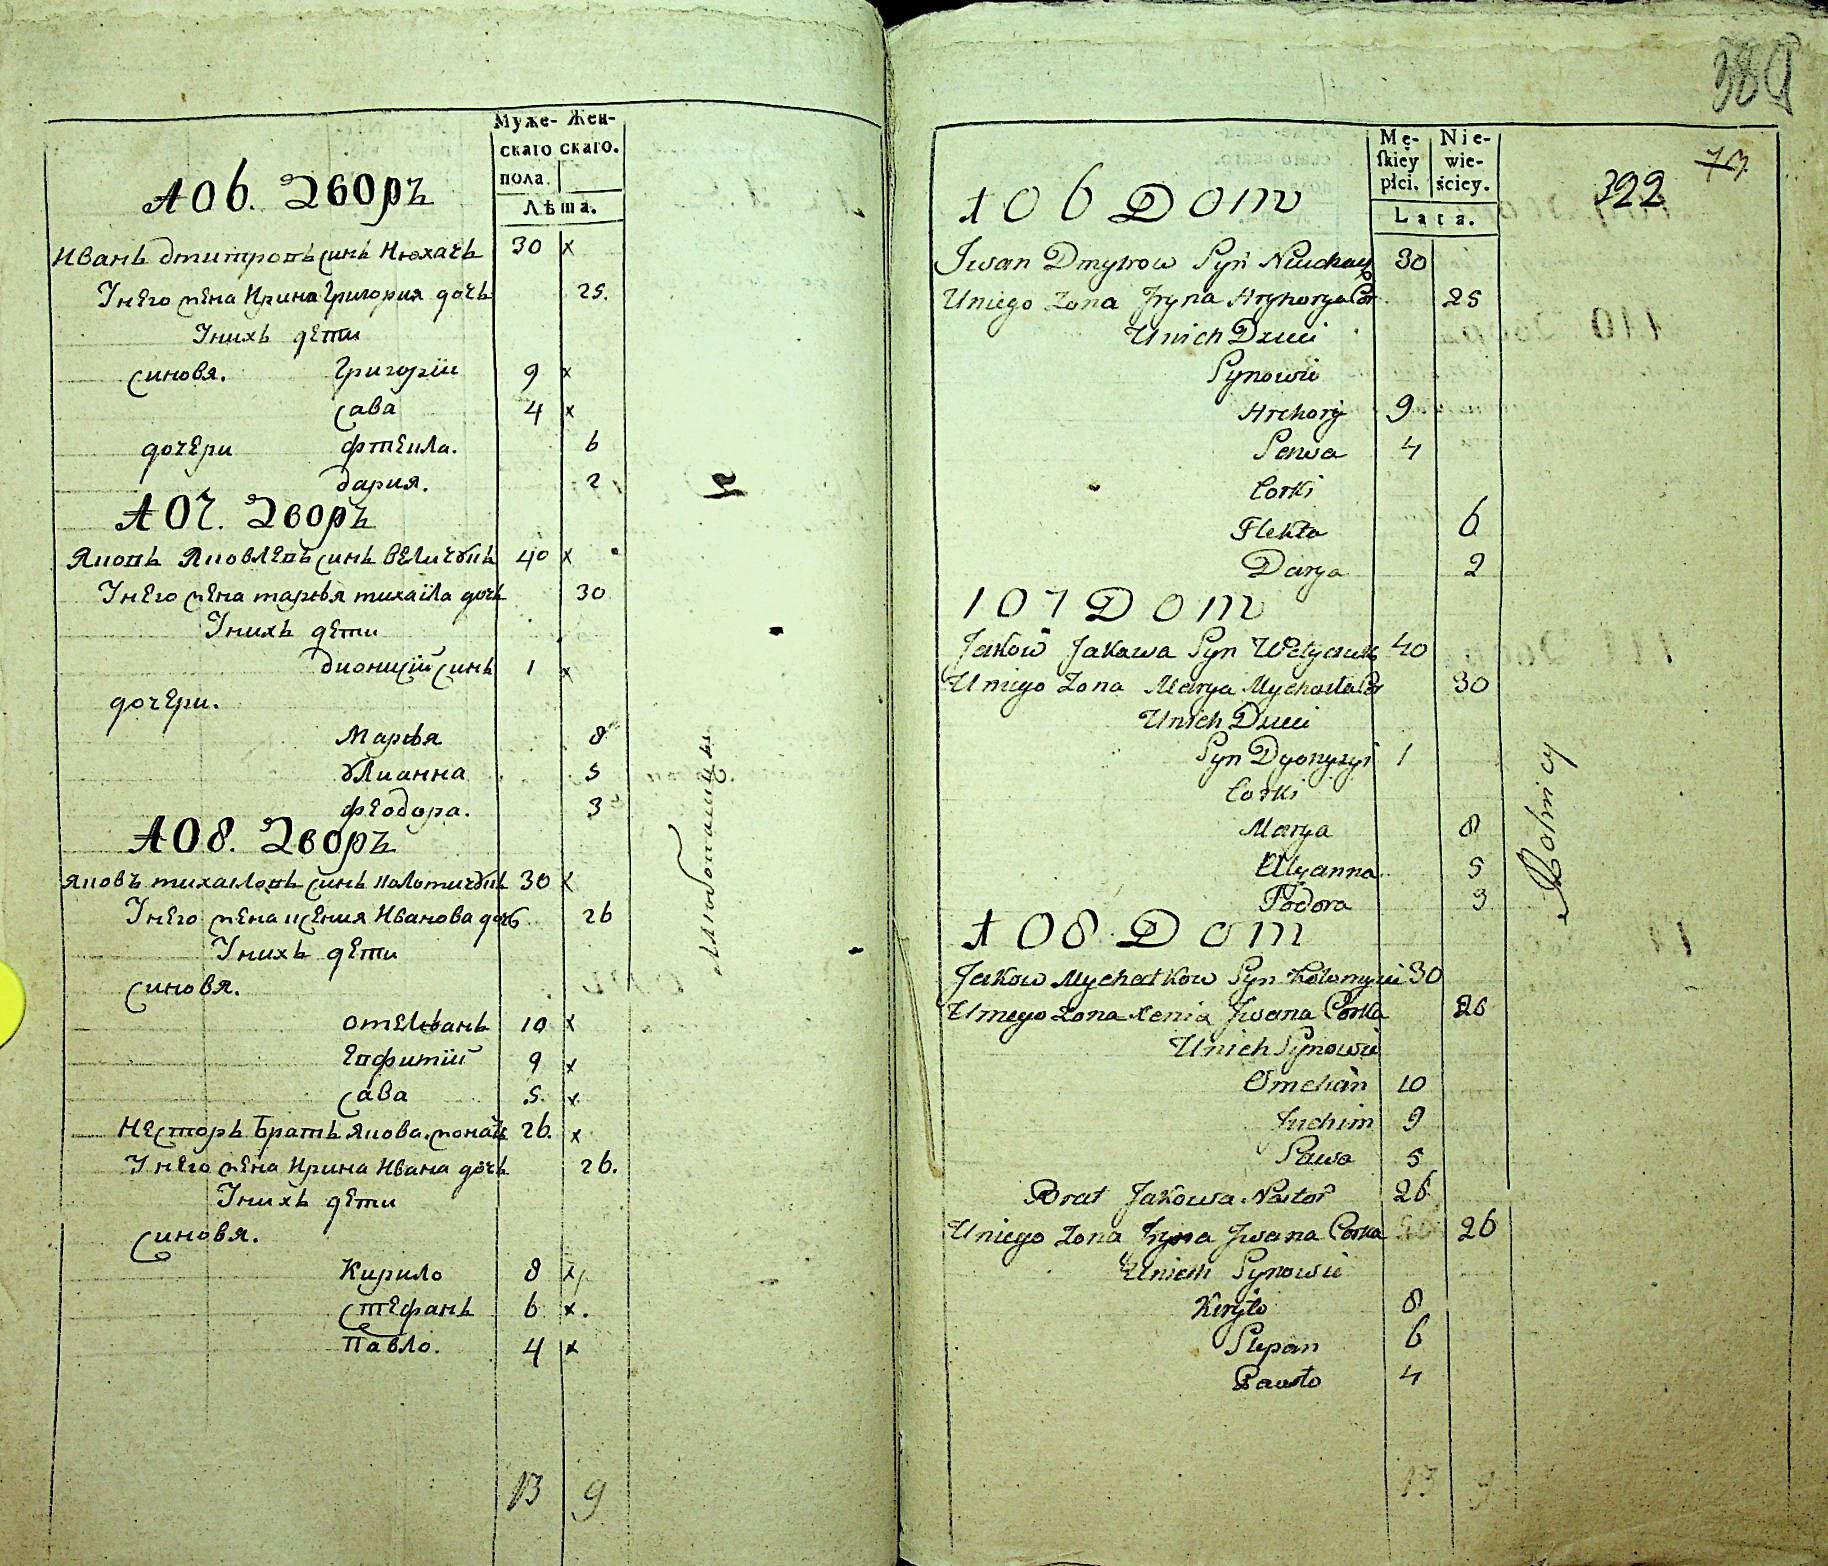 Муже- Жен-
скаго скаго.
пола.
Лѣта.
106. Дворъ
Иванъ Дмитровъ синъ Нюхачъ 30 x
Унего жена Ирина Григория дочь 25.
Унихъ дети
синовя. Григорiй 9 x
сава 4 x
дочери 6
дария. 2
107. Дворъ
Яковъ Яковлевъ синъ Величукъ 40 x
Унего жена марья михайла дочь 30
Унихъ дети
дионицiй синъ 1 x
дочери.
Марья 8
Улианна 5
феодора. 3
108. Дворъ
Яковъ михалковъ синъ коломичукъ 30 x
Унего жена ксения Иванова дочь 26
Унихъ дети
синовя.
омельянъ 10 x
Евфимiй 9 x
сава 5. x
Несторъ Братъ Якова 26. x
Унего жена Ирина Ивана дочь 26.
Унихъ дети
синовя.
Кирило 8 x
стефанъ 6 x.
Павло. 4 x
13 9
389
73
322
Mę- Nie-
skiey wie-
płci. ściey.
Lata.
106 Dom
Jwan Dmytrow Syn Niuchacz 30
Uniego Zona Jryna Hryhorya Cor 25
Unich Dzieci
Synowie
Hrehory 9
Sawa 4
Corki
Flekta 6
Darya 2
107 Dom
Jakow Jakowa Syn Welyczuk 40
Uniego Zona Marya Mychaiła Cor 30
Unich Dzieci
Syn Dyonyzyi 1
Corki
Marya 8
Ulyanna 5
Fodora 3
Rolnicy
108 Dom
Jakow Mychałkow Syn Kołomyiu 30
Uniego Zona Xenia Jwana Corka 26
Unich Synowie
Omelian 10
Juchim 9
Sawa 5
Brat Jakowa Nestor 26
Uniego Zona Jryna Jwana Corka 26
Unich Synowie
Keryło 8
Stepan 6
Pawło 4
13 9